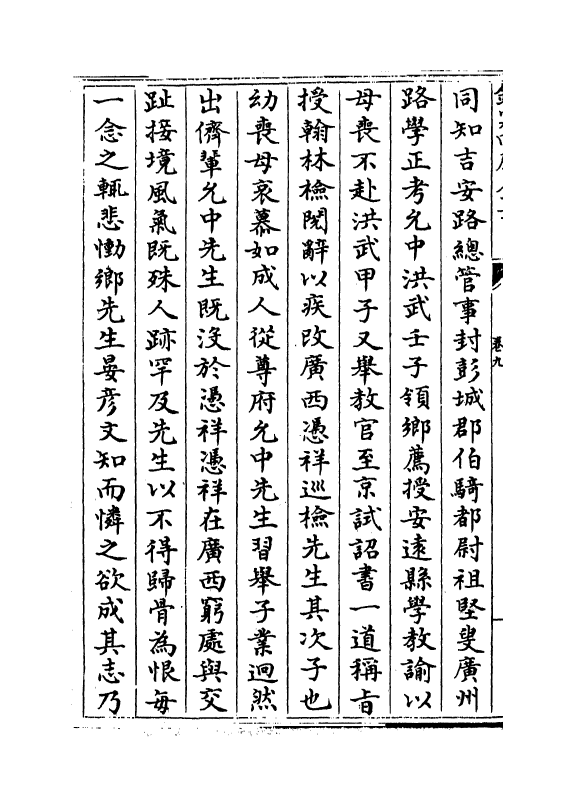 卷九
同知吉安路總管事封彭城郡伯騎都尉祖堅叟廣州
路學正考允中洪武壬子領鄉薦授安遠縣學教諭以
母喪不赴洪武甲子又舉教官至京試詔書一道稱旨
授翰林檢閱辭以疾改廣西憑祥巡檢先生其次子也
幼喪母哀慕如成人從尊府允中先生習舉子業迥然
出儕輩允中先生既沒於憑祥憑祥在廣西窮處與交
趾接境風氣既殊人跡罕及先生以不得歸骨為恨每
一念之輒悲慟鄉先生晏彦文知而憐之欲成其志乃